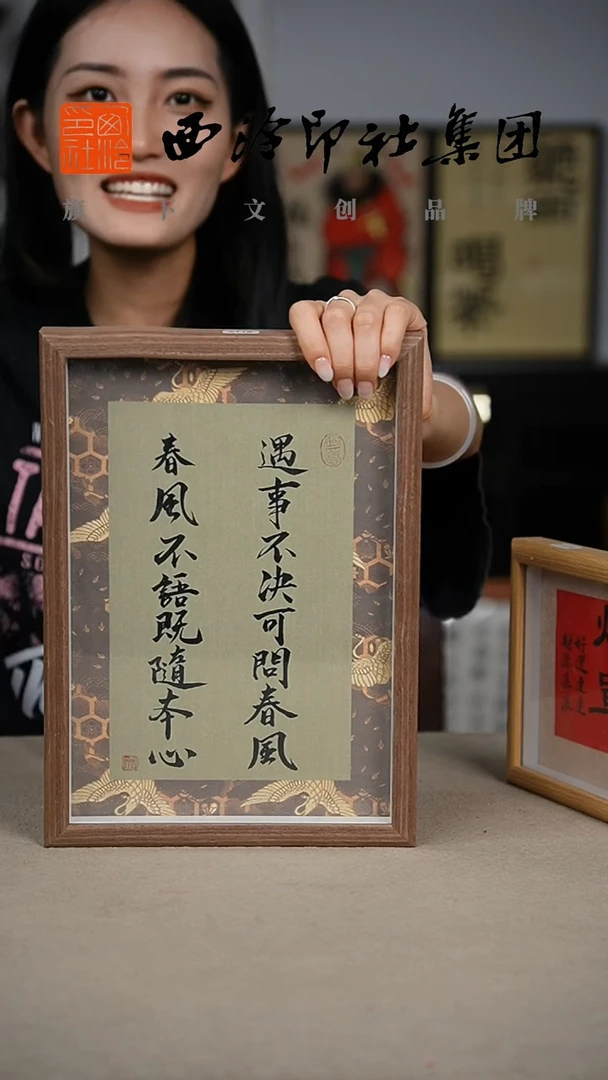 西泠印社集团
旗下文创品牌
遇事不决可問春風
春風不語既隨本心
好運連連